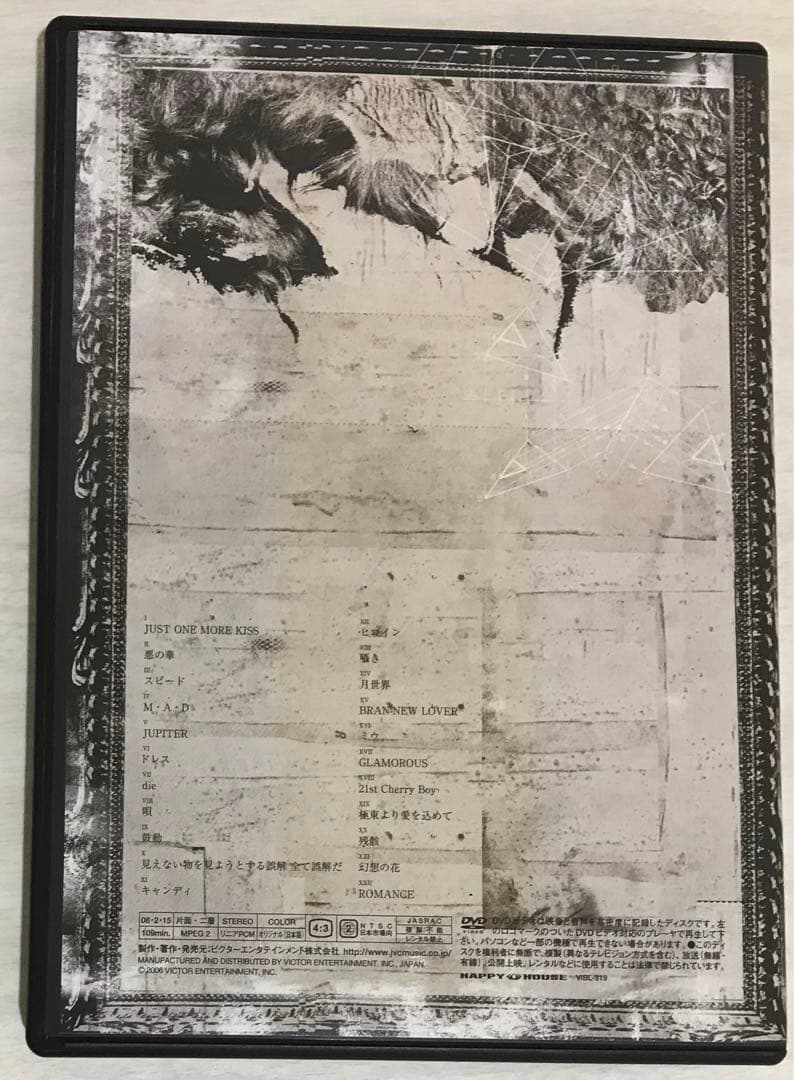 I
JUST ONE MORE KISS
II
悪の華
III
スピード
IV
M・A・D
V
JUPITER
VI
ドレス
VII
die
VIII
唄
IX
鼓動
X
見えない物を見ようとする誤解 全て誤解だ
XI
キャンディ
XII
ヒロイン
XIII
囁き
XIV
月世界
XV
BRAN-NEW LOVER
XVI
ミウ
XVII
GLAMOROUS
XVIII
21st Cherry Boy
XIX
極東より愛を込めて
XX
残骸
XXI
幻想の花
XXII
ROMANCE
06・2・15 片面・二層 STEREO COLOR
109min. MPEG 2 リニアPCM オリジナル(日本語)
4:3
2
NTSC
日本市場向
JASRAC
複製不能
レンタル禁止
製作・著作・発売元:ビクターエンタテインメント株式会社 http://www.jvcmusic.co.jp/
MANUFACTURED AND DISTRIBUTED BY VICTOR ENTERTAINMENT, INC., JAPAN.
© 2006 VICTOR ENTERTAINMENT, INC.
DVD VIDEO
DVDビデオは映像と音声を高密度に記録したディスクです。左
のロゴマークのついたDVDビデオ対応のプレーヤで再生して下
さい。パソコンなど一部の機種で再生できない場合があります。●このディ
スクを権利者に無断で、複製(異なるテレビジョン方式を含む)、放送(無線・
有線)、公開上映、レンタルなどに使用することは法律で禁じられています。
HAPPY HOUSE VIBL-319